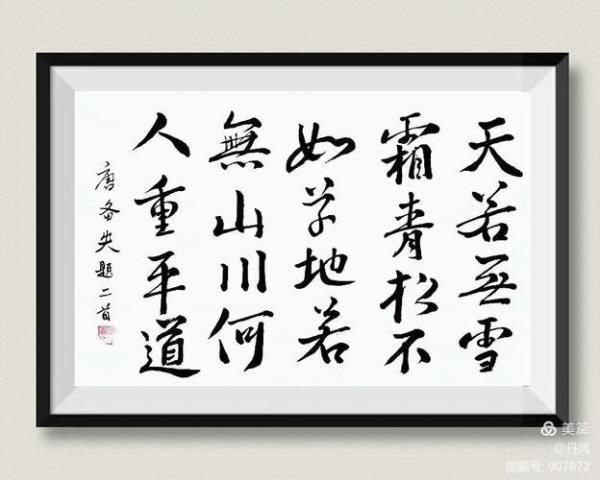 天若無雪
霜青松不
如草地若
無山川何
人重平道
唐备失題二首
美篇
@丹凤
美篇号: 907672